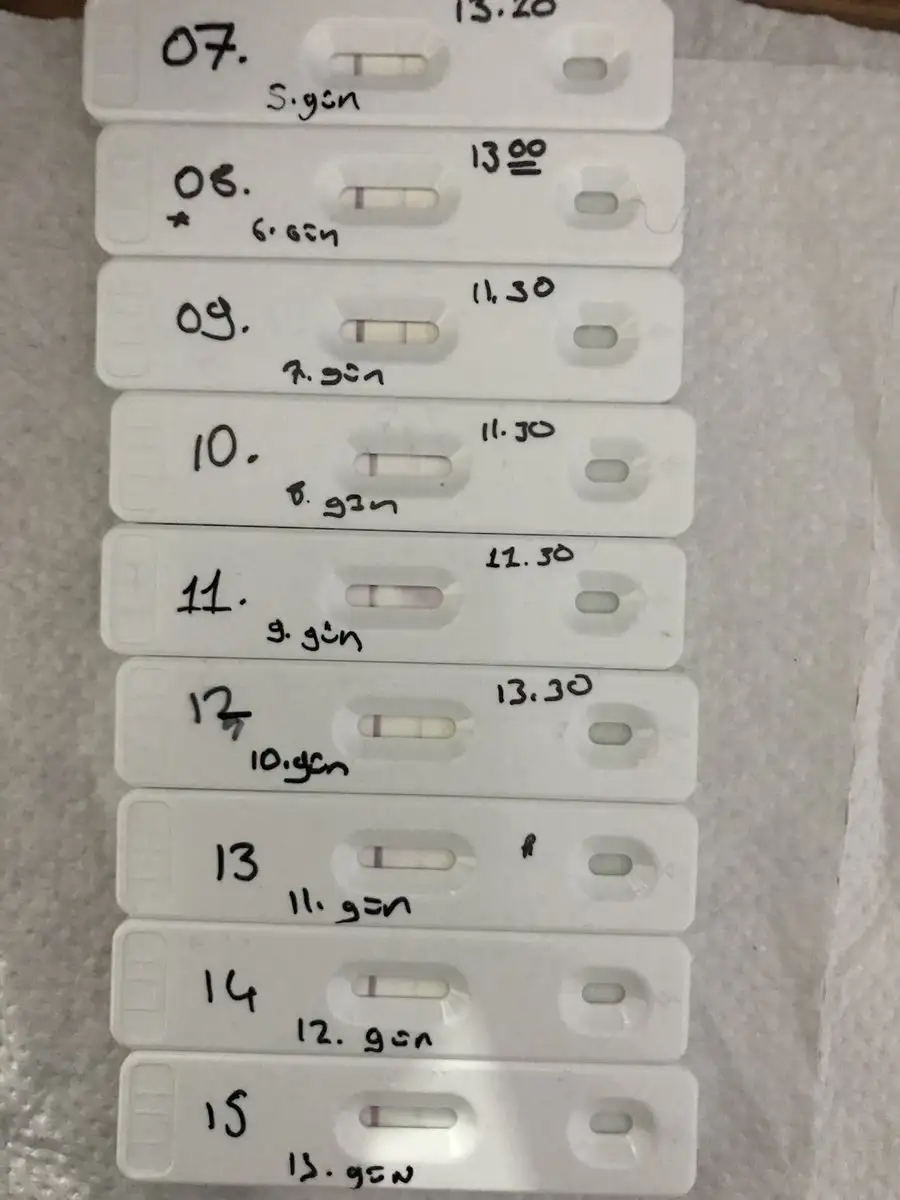 13.20
07.
5.gün
13 00
08.
*
6.gün
11.30
09.
7.gün
11.30
10.
8. gün
11.30
11.
9. gün
13.30
12
10.gün
13
11. gün
14
12. gün
15
13. gün